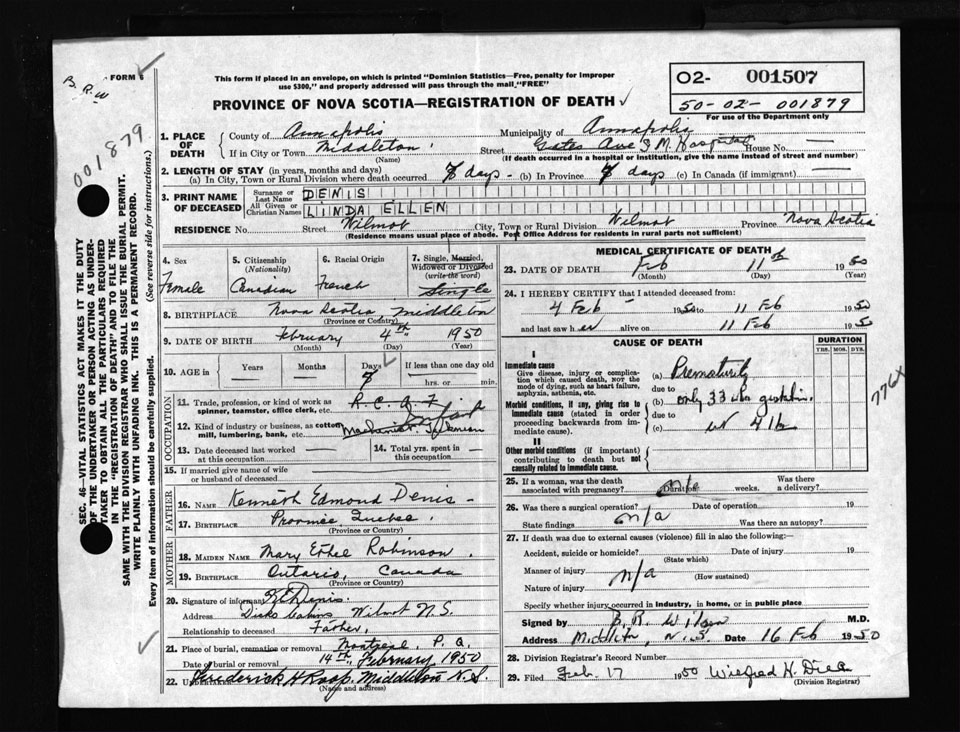 B. R. W
FORM 6
This form if placed in an envelope, on which is printed "Dominion Statistics—Free, penalty for improper
use $300," and properly addressed will pass through the mail "FREE"
O2- 001507
50-02-001879
For use of the Department only
PROVINCE OF NOVA SCOTIA—REGISTRATION OF DEATH
001879
SEC. 46—VITAL STATISTICS ACT MAKES IT THE DUTY
OF THE UNDERTAKER OR PERSON ACTING AS UNDER-
TAKER TO OBTAIN ALL THE PARTICULARS REQUIRED
IN THE "REGISTRATION OF DEATH" AND TO FILE THE
SAME WITH THE DIVISION REGISTRAR WHO SHALL ISSUE THE BURIAL PERMIT.
WRITE PLAINLY WITH UNFADING INK. THIS IS A PERMANENT RECORD.
Every item of information should be carefully supplied. (See reverse side for instructions.)
1. PLACE OF DEATH
County of Annapolis Municipality of Annapolis
If in City or Town Middleton Street Gates Ave S. M. Hospital House No. —
(Name) (If death occurred in a hospital or institution, give the name instead of street and number)
2. LENGTH OF STAY (in years, months and days)
(a) In City, Town or Rural Division where death occurred 8 days - (b) In Province 8 days (c) In Canada (if immigrant) —
3. PRINT NAME OF DECEASED
Surname or Last Name DENIS
All Given or Christian Names LINDA ELLEN
RESIDENCE No. Street Wilmot City, Town or Rural Division Wilmot Province Nova Scotia
(Residence means usual place of abode. Post Office Address for residents in rural parts not sufficient)
4. Sex Female
5. Citizenship (Nationality) Canadian
6. Racial Origin French
7. Single, Married, Widowed or Divorced (write the word) Single
8. BIRTHPLACE Nova Scotia Middleton
(Province or Country)
9. DATE OF BIRTH February 4th 1950
(Month) (Day) (Year)
10. AGE in Years Months Days 8 If less than one day old
hrs. or min.
OCCUPATION
11. Trade, profession, or kind of work as
spinner, teamster, office clerk, etc. R.C.A.F. Infant
12. Kind of industry or business, as cotton
mill, lumbering, bank, etc.
13. Date deceased last worked
at this occupation —
14. Total yrs. spent in
this occupation —
15. If married give name of wife
or husband of deceased
FATHER
16. Name Kenneth Edmond Denis -
17. Birthplace Province Quebec.
(Province or Country)
MOTHER
18. Maiden Name Mary Ethel Robinson.
19. Birthplace Ontario, Canada
(Province or Country)
20. Signature of informant K E Denis.
Address Cabins Wilmot N.S.
Relationship to deceased Father,
21. Place of burial, cremation or removal Montreal, P.Q.
Date of burial or removal 14th, February, 1950
22. UNDERTAKER Frederick H Roop. Middleton N.S.
(Name and address)
MEDICAL CERTIFICATE OF DEATH
23. DATE OF DEATH Feb 11th 1950
(Month) (Day) (Year)
24. I HEREBY CERTIFY that I attended deceased from:
4 Feb 1950 to 11 Feb 1950
and last saw her alive on 11 Feb 1950
CAUSE OF DEATH
DURATION
YRS. MOS. DYS.
I
Immediate cause
Give disease, injury or complica-
tion which caused death, NOT the
mode of dying, such as heart failure,
asphyxia, asthenia, etc.
Morbid conditions, if any, giving rise to
immediate cause (stated in order
proceeding backwards from im-
mediate cause).
(a) Prematurity
due to
(b) only 33 wks gestation.
due to
(c) wt 4 lb
II
Other morbid conditions (if important)
contributing to death but not
causally related to immediate cause.
776X
25. If a woman, was the death
associated with pregnancy? n/a Duration weeks. Was there
a delivery?
26. Was there a surgical operation? Date of operation 19
State findings n/a Was there an autopsy?
27. If death was due to external causes (violence) fill in also the following:—
Accident, suicide or homicide? Date of injury 19
(State which)
Manner of injury n/a
(How sustained)
Nature of injury
Specify whether injury occurred in industry, in home, or in public place
Signed by B. R. Wilson M.D.
Address Middleton, N.S. Date 16 Feb 1950
28. Division Registrar's Record Number
29. Filed Feb. 17 1950
(Division Registrar)